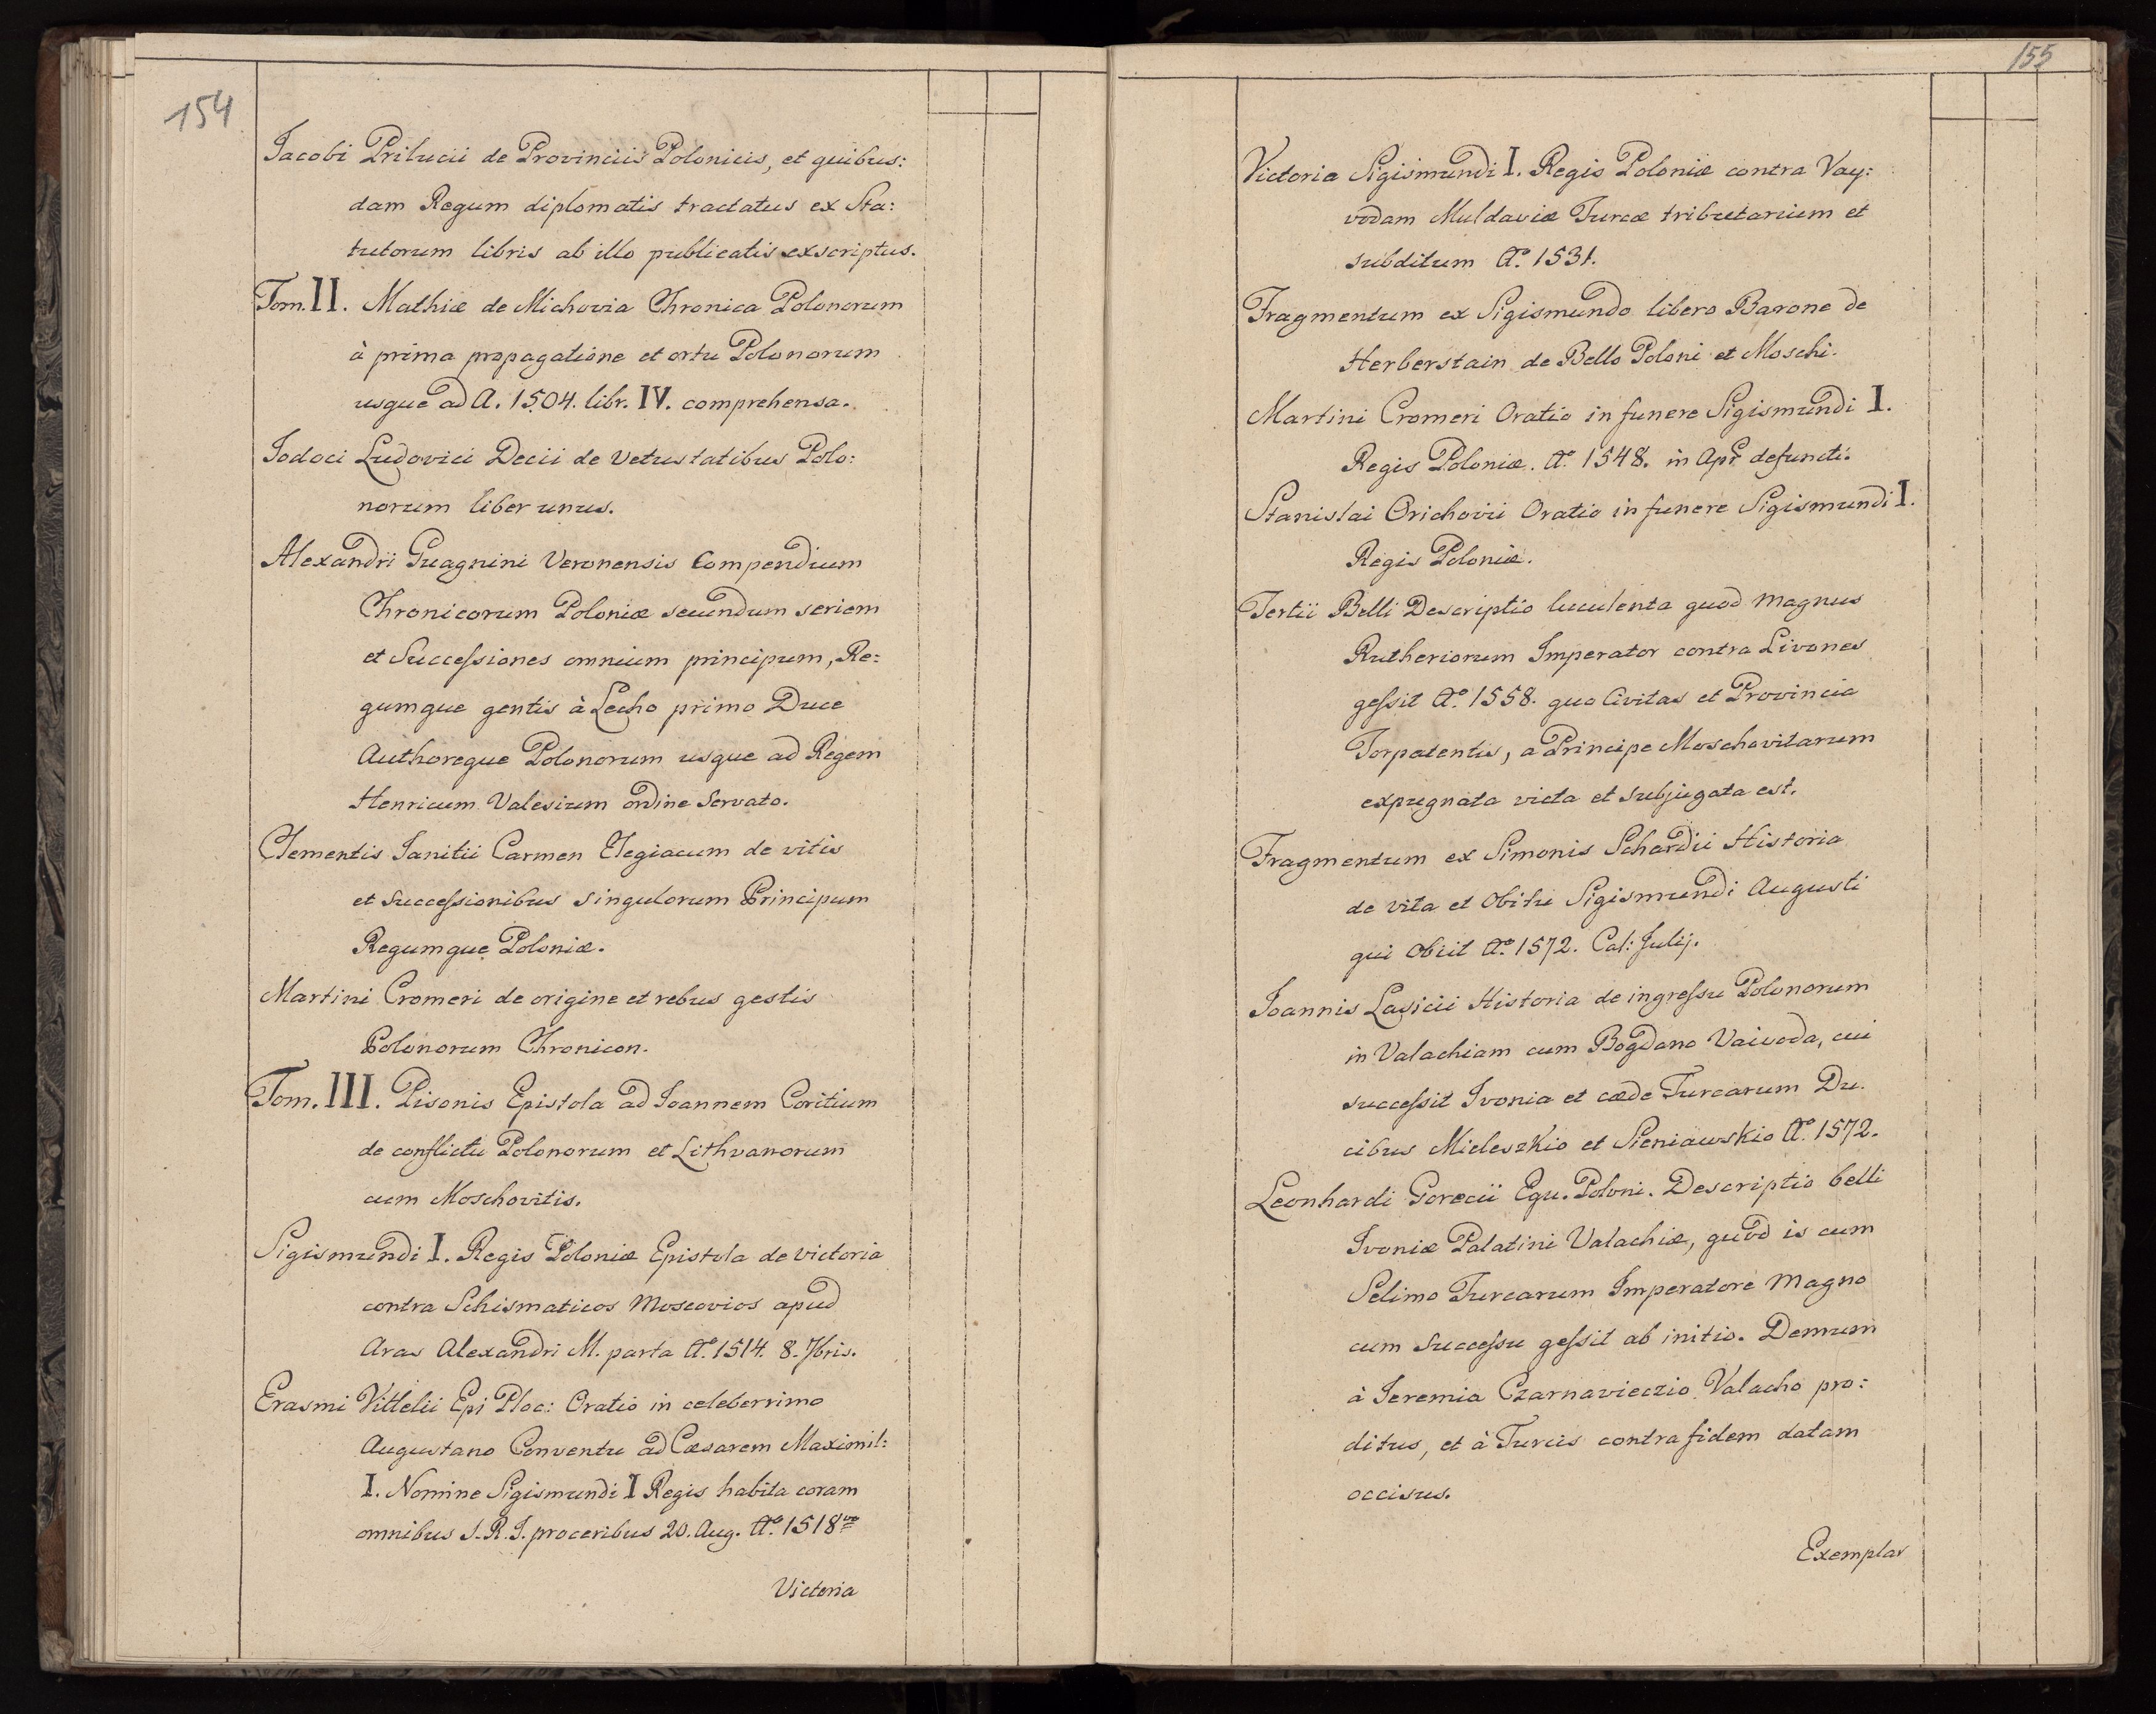 154
Jacobi Prilucii de Provinciis Polonicis, et quibus:
dam Regum diplomatis tractatus ex Sta:
tutorum libris ab illo publicatis exscriptus.
Tom. II. Mathiæ de Michovia Chronica Polonorum
à prima propagatione et ortu Polonorum
usque ad A. 1504. libr. IV. comprehensa.
Jodoci Ludovici Decii de Vetustatibus Polo:
norum liber unus.
Alexandri Guagnini Veronensis Compendium
Chronicorum Poloniæ secundum seriem
et Successiones omnium principum, Re:
gumque gentis à Lecho primo Duce
Authoreque Polonorum usque ad Regem
Henricum Valesium ordine servato.
Clementis Janitii Carmen Elegiacum de vitis
et successionibus singulorum Principum
Regumque Poloniæ.
Martini Cromeri de origine et rebus gestis
Polonorum Chronicon.
Tom. III. Pisonis Epistola ad Joannem Coritium
de conflictu Polonorum et Lithvanorum
cum Moschovitis.
Sigismundi I. Regis Poloniæ Epistola de victoria
contra Schismaticos Moscovios apud
Aras Alexandri M. parta Aº. 1514. 8. 7bris.
Erasmi Vittelii Epi Ploc: Oratio in celeberrimo
Augustano Conventu ad Cæsarem Maximil:
I. Nomine Sigismundi I Regis habita coram
omnibus S. R. I. proceribus 20. Aug. Aº. 1518vo
Victoria
155
Victoria Sigismundi I. Regis Poloniæ contra Vay:
vodam Muldaviæ Turcæ tributarium et
subditum Aº. 1531.
Fragmentum ex Sigismundo libero Barone de
Herberstain de Bello Poloni et Moschi.
Martini Cromeri Oratio in funere Sigismundi I.
Regis Poloniæ. Aº. 1548. in Apr. defuncti.
Stanislai Orichovii Oratio in funere Sigismundi I.
Regis Poloniæ.
Tertii Belli Descriptio luculenta quod Magnus
Rutheriorum Imperator contra Livones
gessit Aº. 1558. quo Civitas et Provincia
Torpatentis, a Principe Moschovitarum
expugnata victa et subjugata est.
Fragmentum ex Simonis Schardii Historia
de vita et Obitu Sigismundi Augusti
qui Obiit Aº. 1572. Cal: Julij.
Joannis Lasicii Historia de ingressu Polonorum
in Valachiam cum Bogdano Vaivoda, cui
successit Ivonia et cæde Turcarum Du.
cibus Mieleszkio et Sieniawskio Aº. 1572.
Leonhardi Gorecii Equ. Poloni. Descriptio belli
Ivoniæ Palatini Valachiæ, quod is cum
Selimo Turcarum Imperatore Magno
cum successu gessit ab initio. Demum
à Jeremia Czarnavieczio Valacho pro:
ditus, et à Turcis contra fidem datam
occisus.
Exemplar